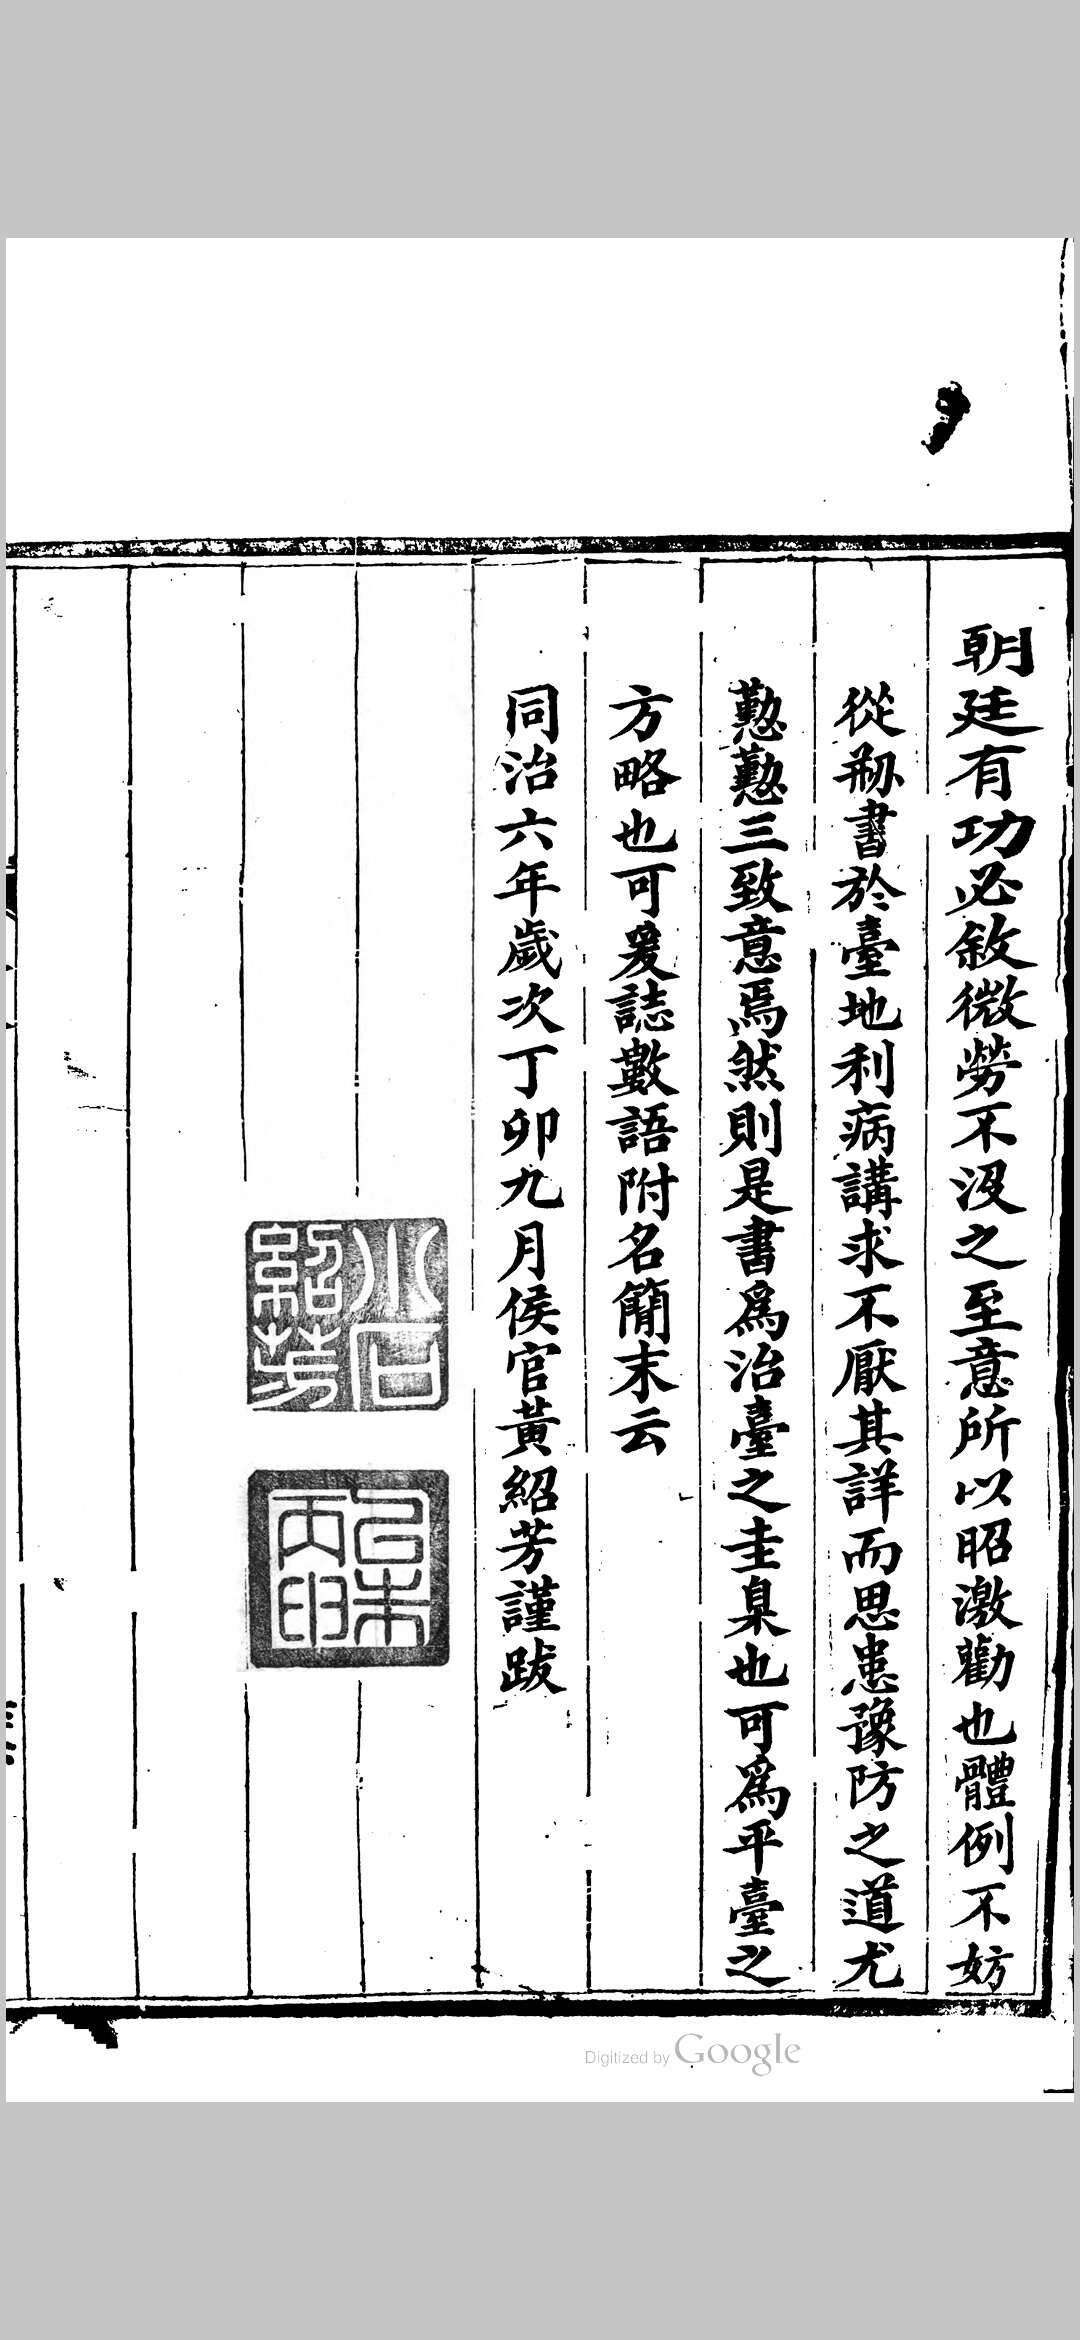 朝廷有功必敘微勞不沒之至意所以昭激勸也體例不妨
從刱書於臺地利病講求不厭其詳而思患豫防之道尤
懃懃三致意焉然則是書爲治臺之圭臬也可爲平臺之
方略也可爰誌數語附名簡末云
同治六年歲次丁卯九月侯官黃紹芳謹跋
小石
紹芳
Digitized by Google